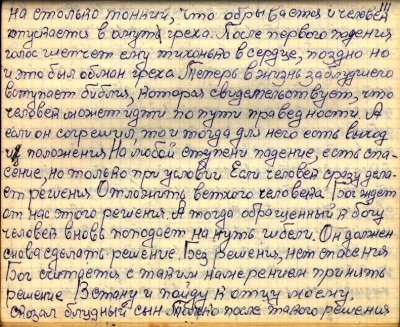 111
на столько тонкий, что обрывается и человек
опускается в омут греха. После первого падения
голос шепчет ему тихонько в сердце, поздно но
и это был обман греха. Теперь в жизнь заблудшего
вступает библия, которая свидетельствует, что
человек может идти по пути праведности. А
если он согрешил, то и тогда для него есть выход
из положения. На любой ступени падение, есть спа-
сение, но только при условии Если человек сразу дела-
ет решения Отложить ветхого человека. Бог ждет
от нас этого решения. А тогда обращенный к богу
человек вновь попадает на путь гибели. Он должен
снова сделать решение. Без решения, нет спасения
Бог считается с таким намерением принять
решение Встану и пойду к отцу моему.
сказал блудный сын Только после такого решения